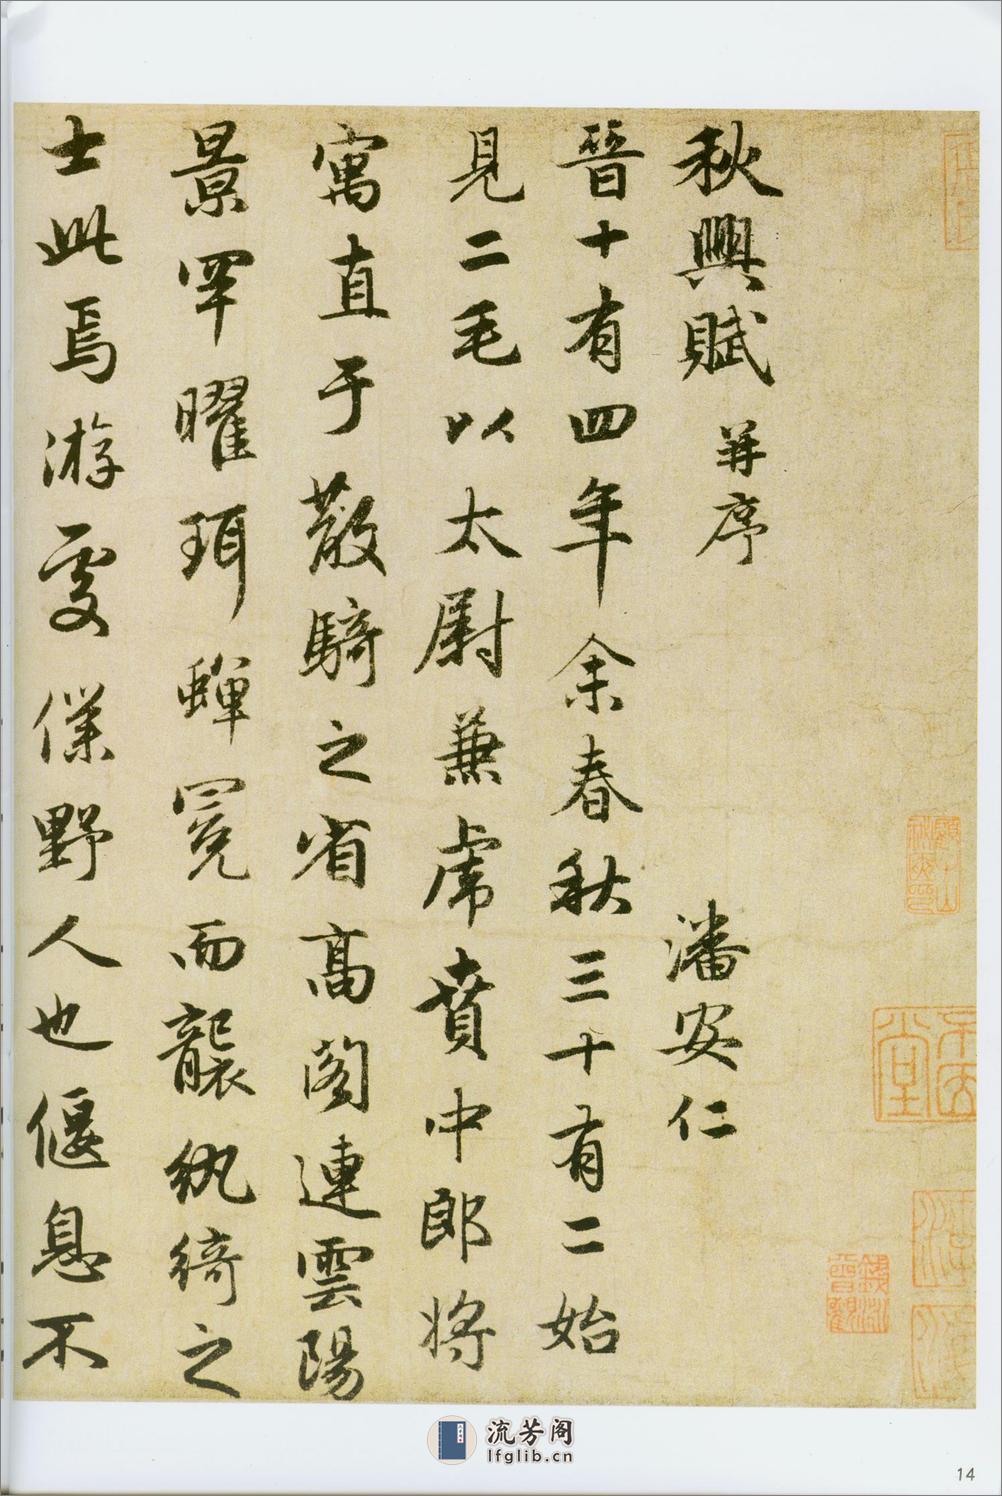 秋興賦 并序 潘安仁
晉十有四年余春秋三十有二始
見二毛以太尉兼虎賁中郎將
寓直于散騎之省高閣連雲陽
景罕曜珥蟬冕而襲紈綺之
士此焉游處僕野人也偃息不
流芳阁
lfglib.cn
14